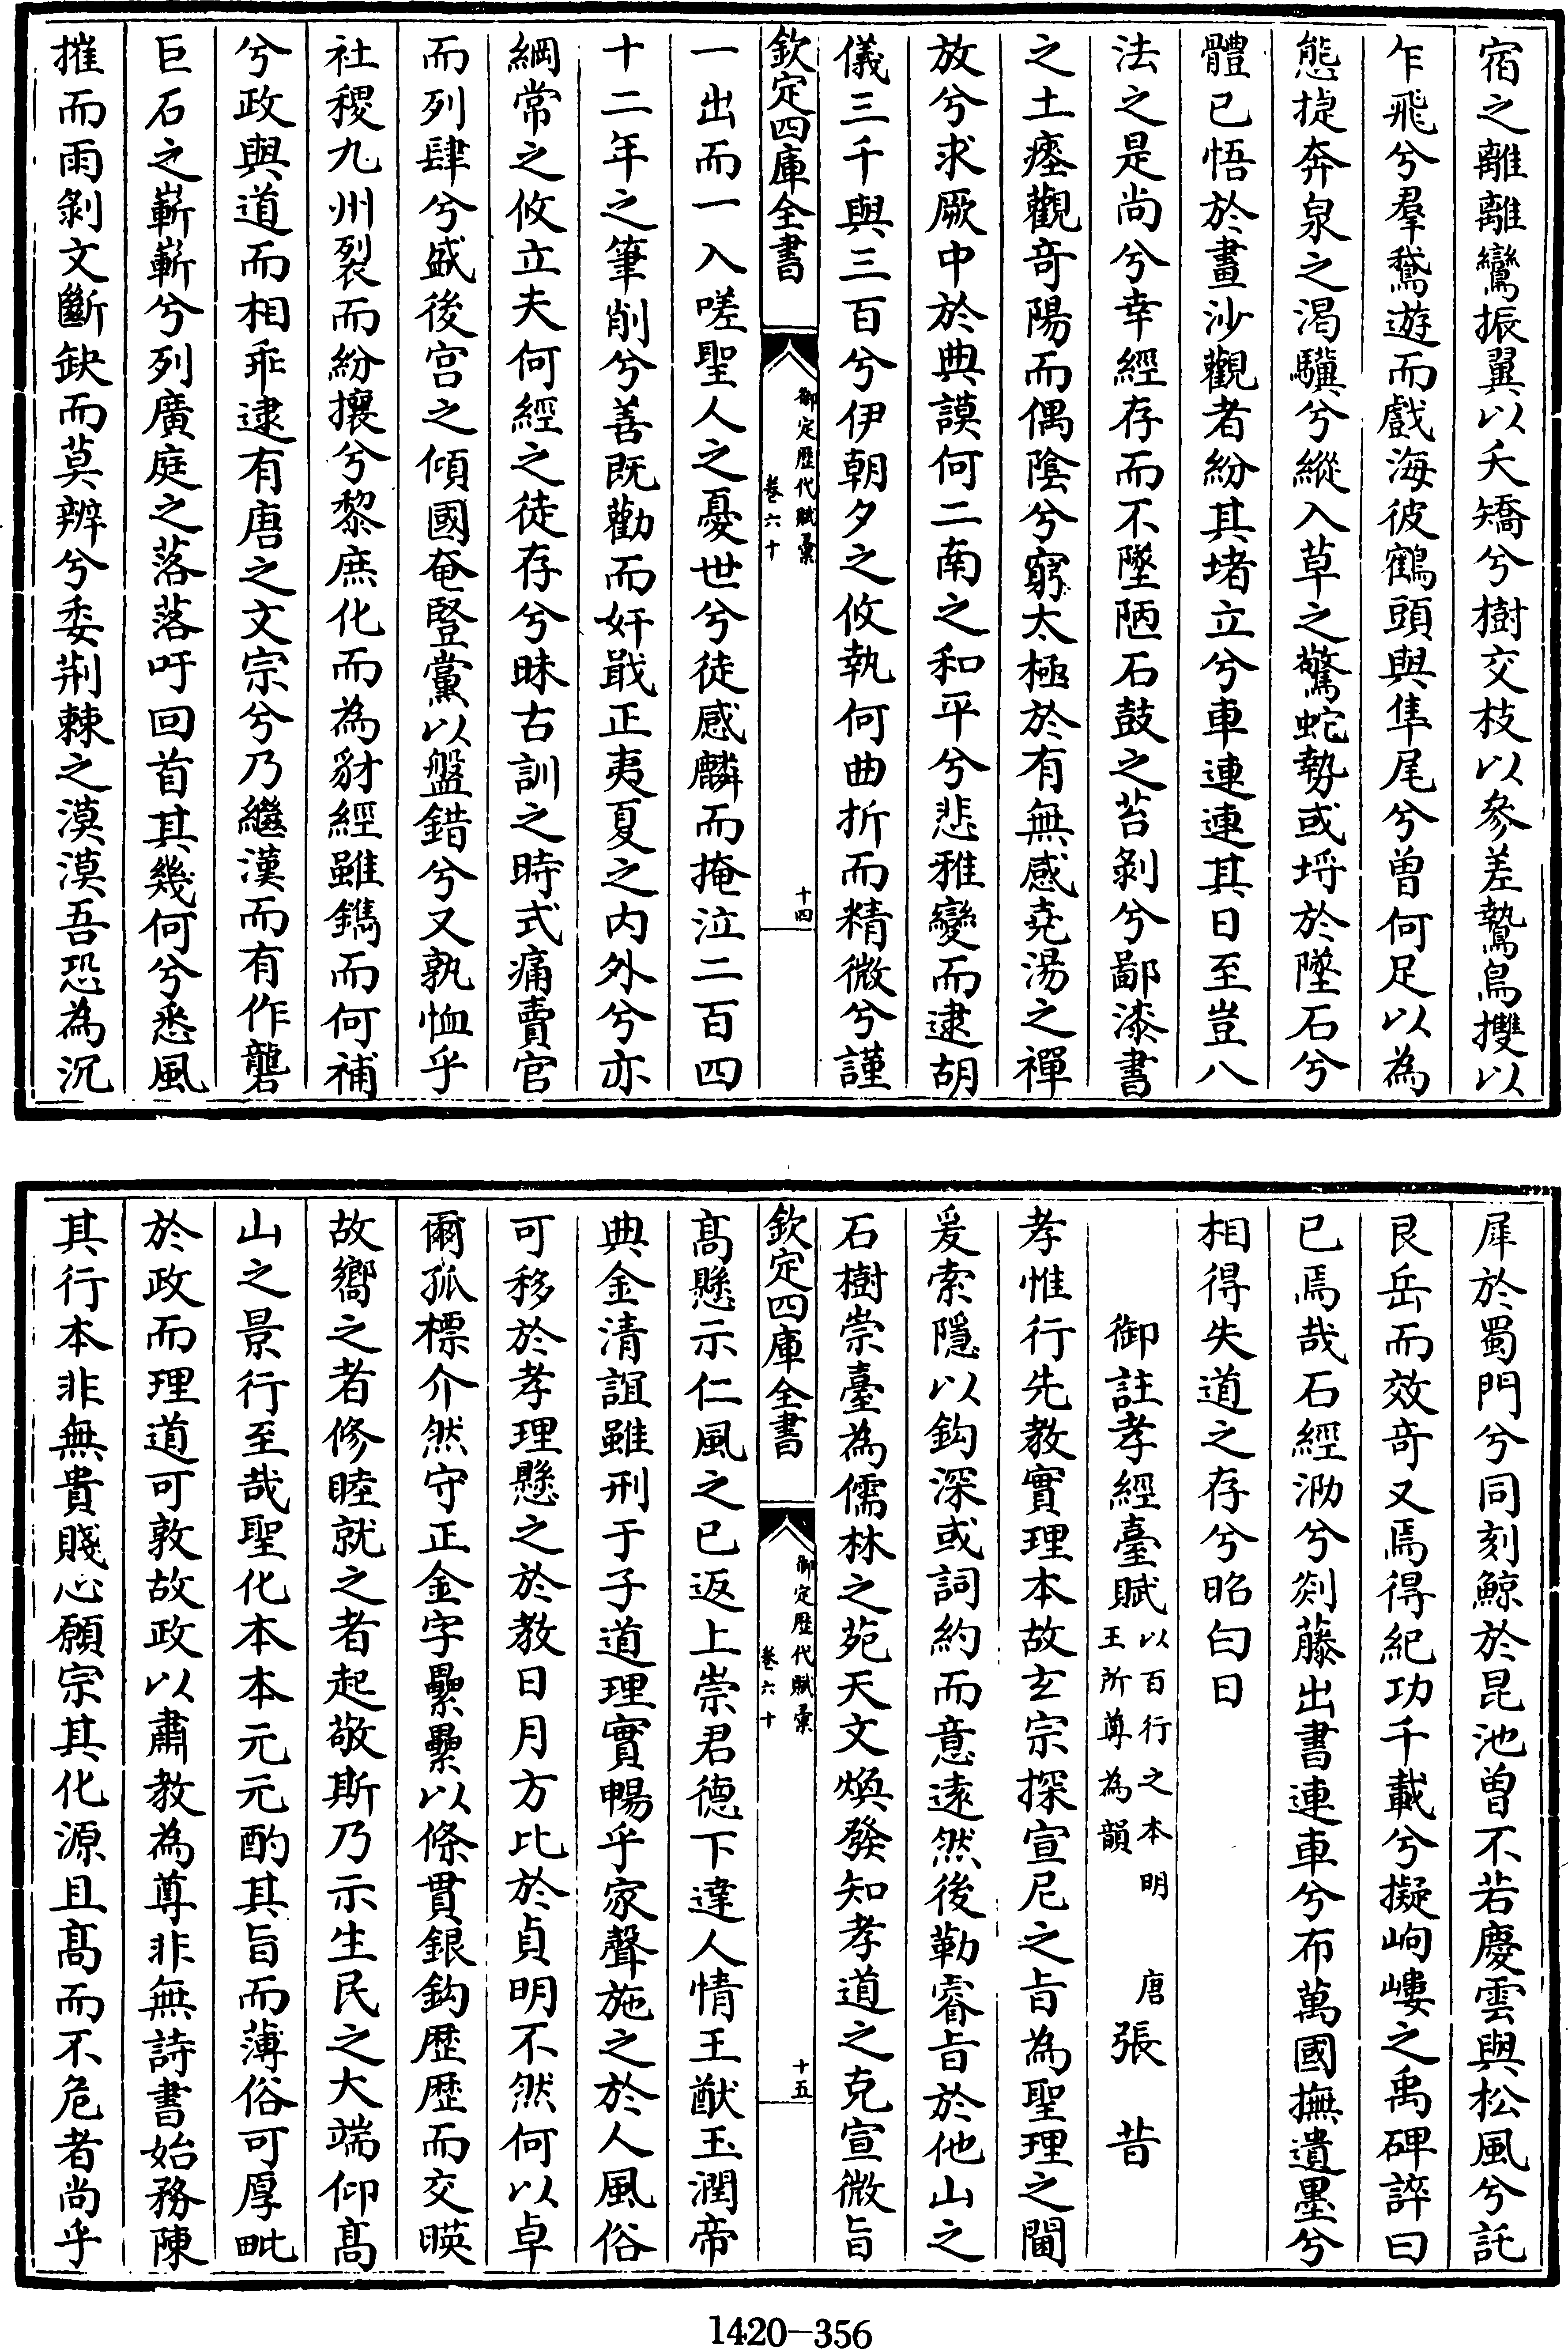 宿之離離鸞振翼以夭矯兮樹交枝以參差鷙鳥攫以
乍飛兮羣鵞遊而戲海彼鶴頭與隼尾兮曾何足以為
態捷奔泉之渴驥兮縱入草之驚蛇勢或埒於墜石兮
體已悟於畫沙觀者紛其堵立兮車連連其日至豈八
法之是尚兮幸經存而不墜陋石鼓之苔剝兮鄙漆書
之土瘞觀竒陽而偶陰兮窮太極於有無感堯湯之禪
放兮求厥中於典謨何二南之和平兮悲雅變而逮胡
儀三千與三百兮伊朝夕之攸執何曲折而精微兮謹
欽定四庫全書
御定歴代賦彙
卷六十
十四
一出而一入嗟聖人之憂世兮徒感麟而掩泣二百四
十二年之筆削兮善既勸而奸戢正夷夏之内外兮亦
綱常之攸立夫何經之徒存兮昧古訓之時式痛賣官
而列肆兮盛後宫之傾國奄豎黨以盤錯兮又孰恤乎
社稷九州裂而紛攘兮黎庶化而為豺經雖鐫而何補
兮政與道而相乖逮有唐之文宗兮乃繼漢而有作礱
巨石之嶄嶄兮列廣庭之落落吁回首其幾何兮悉風
摧而雨剝文斷缺而莫辨兮委荆棘之漠漠吾恐為沉
犀於蜀門兮同刻鯨於昆池曾不若慶雲與松風兮託
艮岳而效竒又焉得紀功千載兮擬岣嶁之禹碑誶曰
已焉哉石經泐兮剡藤出書連車兮布萬國撫遺墨兮
相得失道之存兮昭白日
御註孝經臺賦以百行之本明王所尊為韻 唐 張昔
孝惟行先教實理本故玄宗探宣尼之旨為聖理之閫
爰索隱以鈎深或詞約而意遠然後勒睿旨於他山之
石樹崇臺為儒林之苑天文煥發知孝道之克宣微旨
欽定四庫全書
御定歴代賦彙
卷六十
十五
髙懸示仁風之已返上崇君德下達人情王猷玉潤帝
典金清誼雖刑于子道理實暢乎家聲施之於人風俗
可移於孝理懸之於教日月方比於貞明不然何以卓
爾孤標介然守正金字纍纍以條貫銀鈎歴歴而交暎
故嚮之者修睦就之者起敬斯乃示生民之大端仰髙
山之景行至哉聖化本本元元酌其旨而薄俗可厚毗
於政而理道可敦故政以肅教為尊非無詩書始務陳
其行本非無貴賤心願宗其化源且髙而不危者尚乎
1420-356